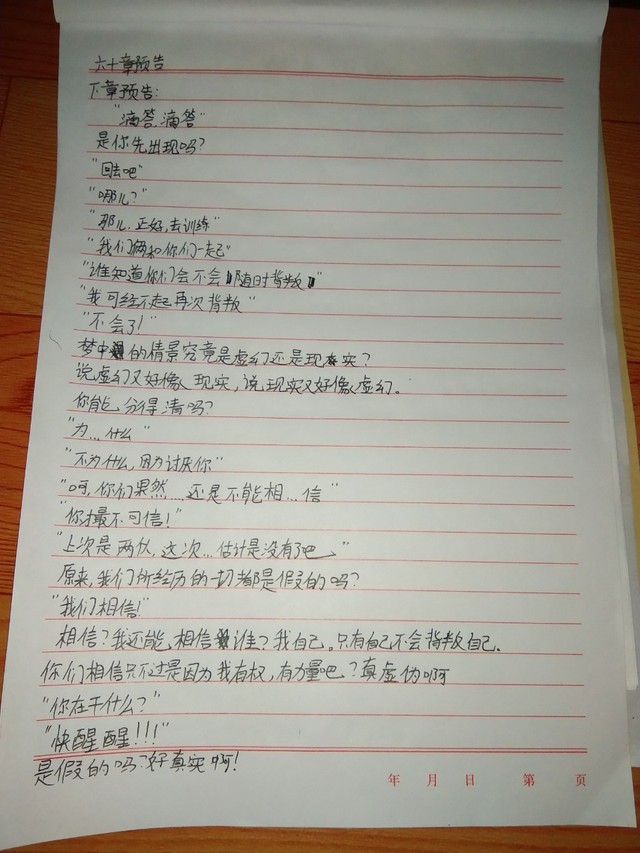 六十章预告
下章预告:
"滴答,滴答"
是你先出现吗?
"回去吧"
"哪儿?"
"那儿.正好,去训练"
"我们俩和你们一起"
"谁知道你们会不会随时背叛"
"我可经不起再次背叛"
"不会了!"
梦中的情景究竟是虚幻还是现实?
说虚幻又好像现实,说现实又好像虚幻。
你能分得清吗?
"为...什么"
"不为什么,因为讨厌你"
"呵,你们果然......还是不能相...信"
"你才最不可信!"
"上次是两伙,这次...估计是没有了吧。"
原来,我们所经历的一切都是假的吗?
"我们相信!"
相信?我还能相信谁?我自己。只有自己不会背叛自己.
你们相信只不过是因为我有权,有力量吧?真虚伪啊
"你在干什么?"
"快醒醒!!!"
是假的吗?好真实啊!
年 月 日 第 页